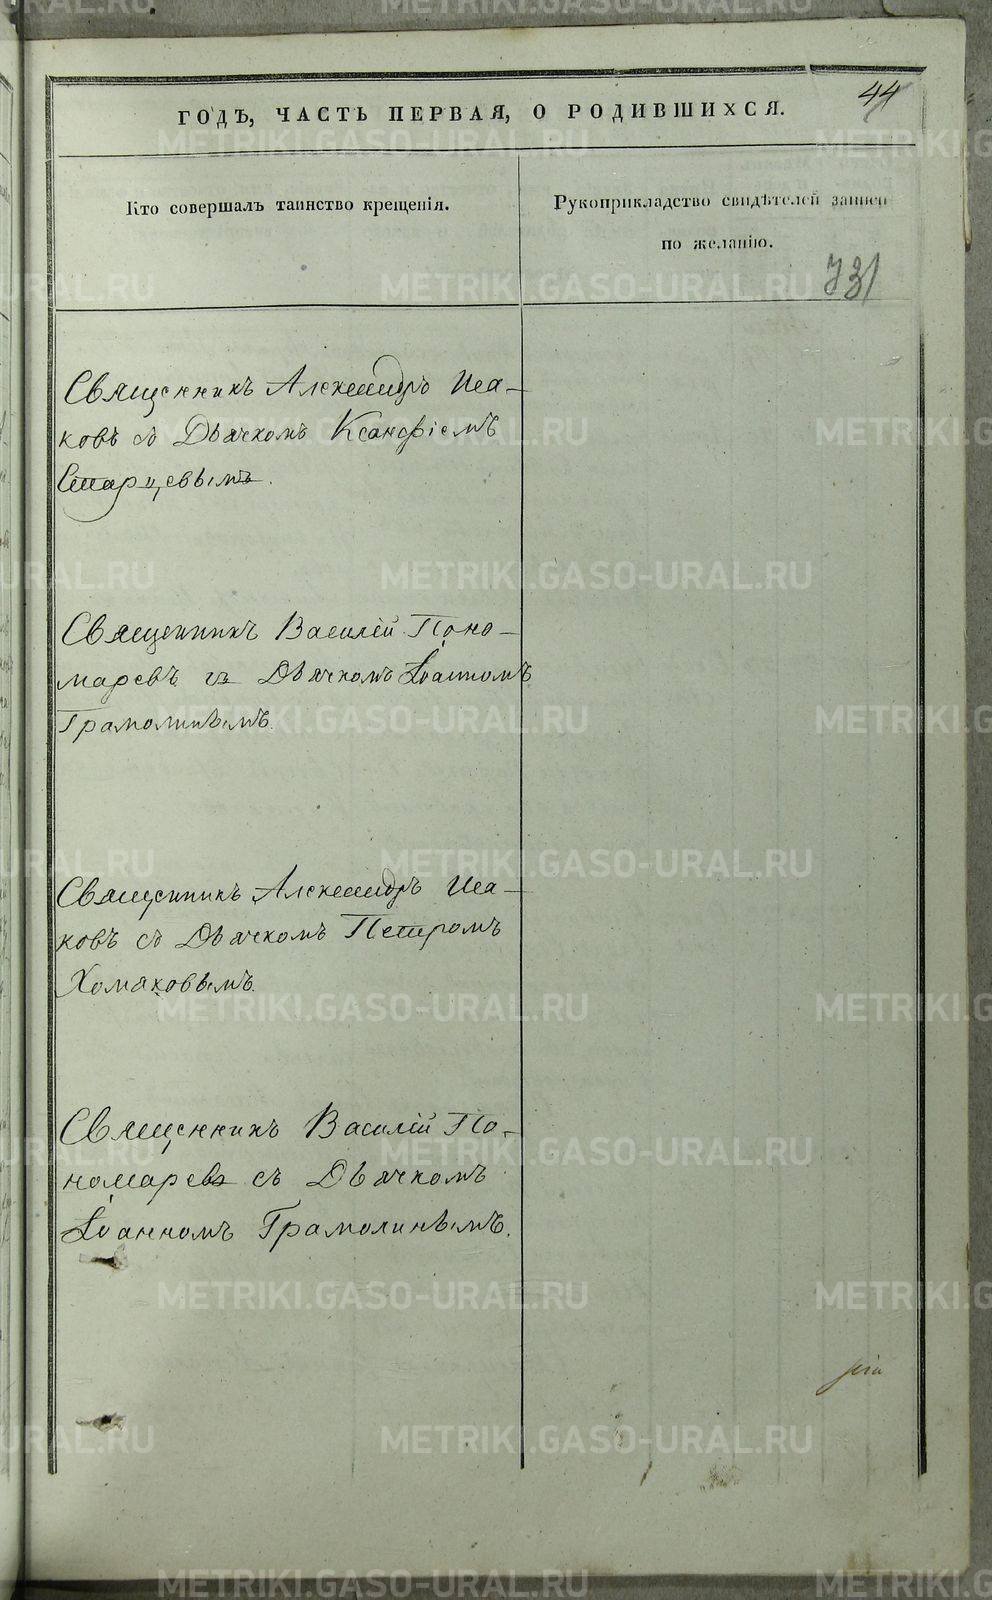 44
ГОДЪ, ЧАСТЬ ПЕРВАЯ, О РОДИВШИХСЯ.
Кто совершалъ таинство крещенія.
Рукоприкладство свидѣтелей записи
по желанію.
731
Священникъ Александръ Иса-
ковъ съ Дьячкомъ Ксанфіемъ
Старцевымъ.
Священникъ Василій Поно-
маревъ съ Дьячкомъ Іоанномъ
Грамолинымъ.
Священникъ Александръ Иса-
ковъ съ Дьячкомъ Петромъ
Хомяковымъ.
Священникъ Василій По-
номаревъ съ Дьячкомъ
Іоанномъ Грамолинымъ.
METRIKI.GASO-URAL.RU